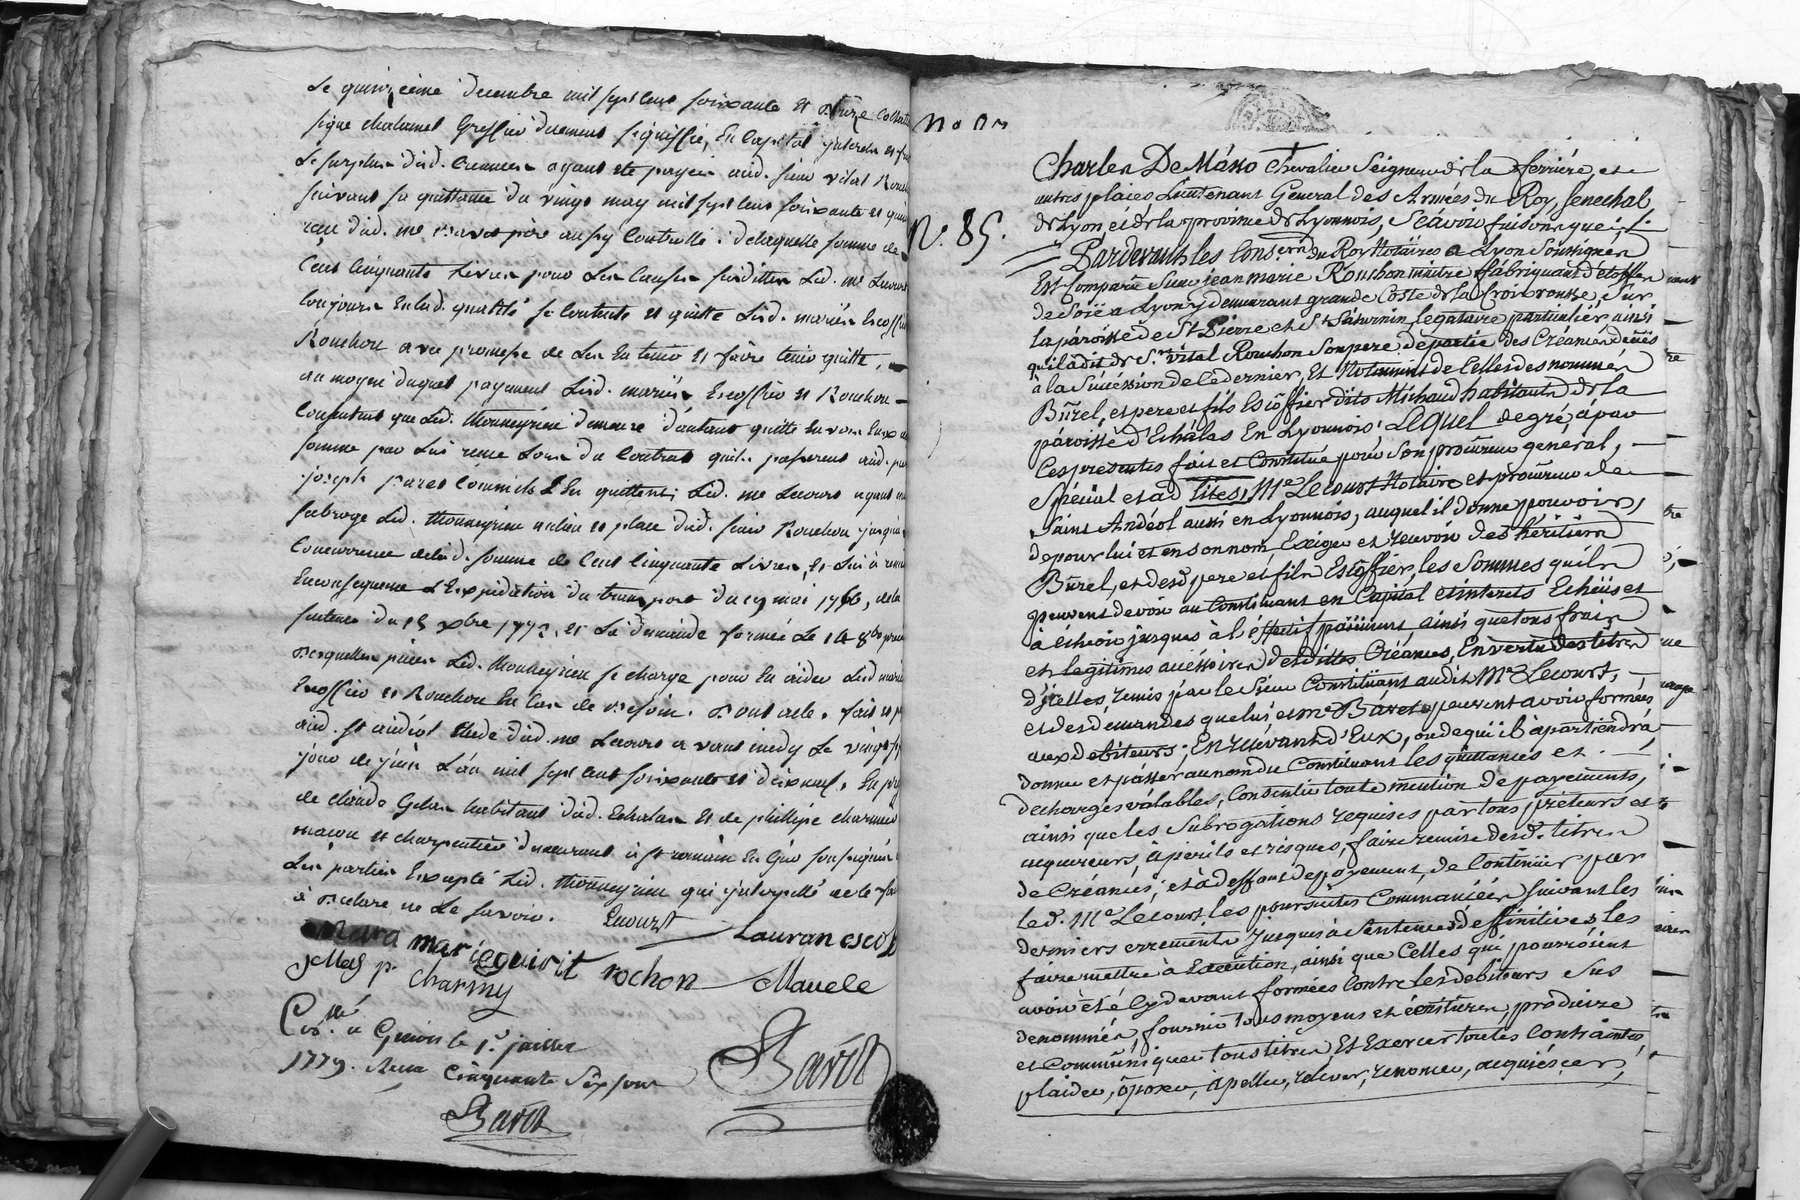 Le quinzieme decembre mil sept cent soixante et douze
signé chalamel Greffier duement signiffiée, En Capital interets et
Le surplus desd. Creances ayant ete payée aud. sieur vital
suivant sa quittance du vingt may mil sept cent soixante et
reçu dud. me pere aussy Controllé. de laquelle somme de
Cent Cinquante Livres pour Les Causes susdittes Led. me Lecourt
toujours En lad. qualité se Contente et quitte Lesd. mariés Escoffier
Rouchon avec promesse de Les En tenir et faire tenir quitte, —
au moyen duquel payement Lesd. mariés Escoffier et Rouchon —
Consentent que Led. Monneyrieu demeure d'autant quitte Envers Eux
somme par Lui reçue Lors du Contrat qu'ils passerent aud.
joseph Led. me Lecourt ayant
subrogé Led. Monneyrieu au lieu et place dud. sieur Rouchon jusqu'à
Concurrence de lad. somme de Cent Cinquante Livres, et Lui a remis
En consequence L'Expedition du transport du 19 mai 1766, de la
sentence du 15 xbre 1772, et La demande formée Le 14 8bre
Desquelles pieces Led. Monneyrieu se charge pour En aider Lesd mariés
Escoffier et Rouchon En Cas de Besoin. Dont acte. fait et
aud. st andéol Etude dud. me Lecourt avant midy Le vingt
jour de juin L'an mil sept cent soixante et dixneuf. En
de claude habitant dud. Echalas et de philippe charmy
maçon et charpentier demeurant à st romain En Gier soussignés
Les parties Excepté Led. Monneyrieu qui de ce
à Declaré ne Le savoir. Lecourt Lauran escof
mara marieguirit rochon Mauele
p. charmy
Con.llé a Givors le 1.r juillet
1779. Reçu Cinquante Six sous Bavet
Bavet
N.º 85.
Charles De Masso Chevalier Seigneur de la ferriére, et
autres places Lieutenant Général des Armées du Roy, Senechal
de Lyon et de la province de Lyonnois, Sçavoir faisons que; /.
Pardevant les Cons.ers du Roy Notaires a Lyon Soussignés
Est Comparu Sieur jean marie Rouchon maitre fabriquant d'étoffes
de Soïe a Lyon y demeurant grande Coste de la Croix rousse, Sur
la paroisse de St. Pierre et St. Saturnin, legataire particulier ainsi
qu'il à dit de S.r vital Rouchon Son pere de partie des Créances dues
à la Succession de Ce dernier, Et Notament de Celles des nommés
Burel, et pere et fils Escoffier dits Michaud habitants de la
paroisse d'Echâlas En Lyonnois; Lequel de gré, à par
Ces présentes fait et Constitué pour Son procureur general,
Spécial et ad lites, Me Lecourt Notaire et procureur de
Saint Andéol aussi en Lyonnois, auquel il donne pouvoir,
de pour lui et en son nom, Exiger et recevoir des héritiers
Burel, et desd. pere et fils Escoffier, les Sommes qu'ils
peuvent devoir au Constituant en Capital et interets Echus et
à échéoir jusques à l'éffectif paiement ainsi que tous frais
et legitimes accéssoires desdittes Créances, En vertu des titres
d'icelles, remis par le Sieur Constituant audit Me Lecourt,
et des demandes que lui, et Me Bavet peuvent avoir formées
aux debiteurs; En recevant d'Eux, ou de qui il àpartiendra
donner et passer au nom du Constituant les quittances et
décharges valables, Consentir toute mention de payements,
ainsi que les Subrogations requises par tous préteurs et
acquereurs, à périls et risques, faire remise desd. titres
de Créances; et à deffaut de payement, de Continuer par
led. Me Lecourt les poursuites Commancées Suivant les
derniers errements jusques à Sentences deffinitives les
faire mettre à Execution, ainsi que Celles qui pourroient
avoir été Cy devant formées Contre les debiteurs Sus
denommés, fournir tous moyens et écritures, produire
et Communiquer tous titres Et Exercer toutes Contraintes,
plaider, óposer, àpeller, relever, renoncer, acquiéscer,